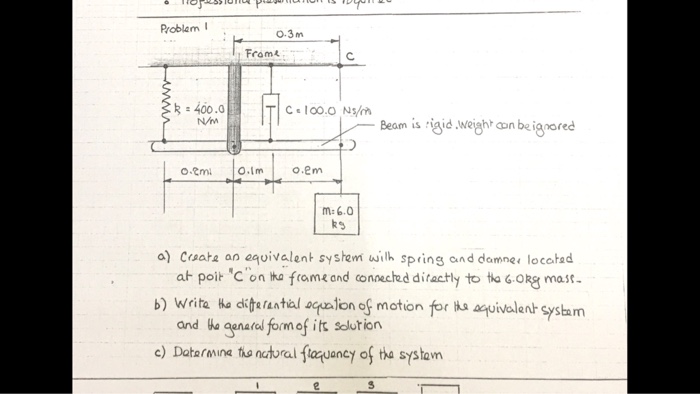 Problem 1
0.3m
Frame
C
k = 400.0
N/m
C = 100.0 Ns/m
Beam is rigid. Weight can be ignored
0.2m
0.1m
0.2m
m: 6.0
kg
a) Create an equivalent system with spring and damper located
at poit "C" on the frame and connected directly to the 6.0kg mass.
b) Write the differential equation of motion for the equivalent system
and the general form of its solution
c) Determine the natural frequency of the system
1 2 3